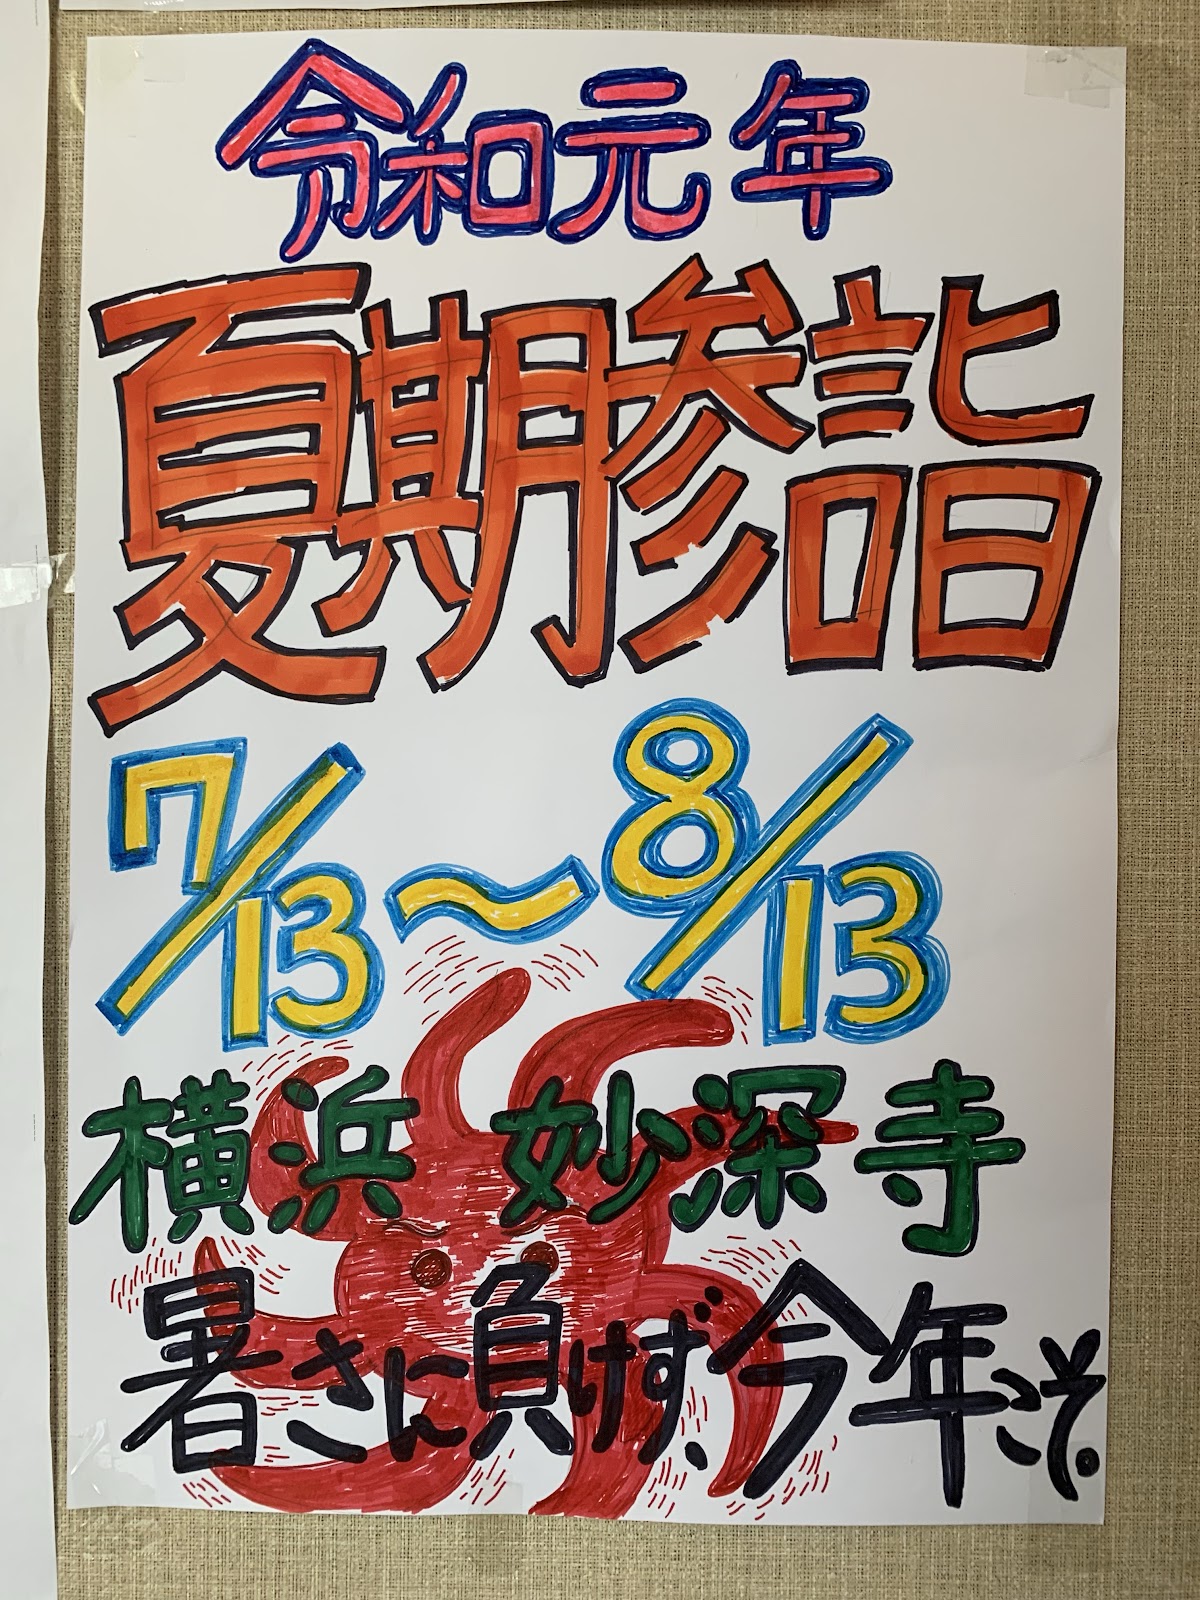 令和元年
夏期参詣
7/13〜8/13
横浜 妙深寺
暑さに負けず、今年こそ。